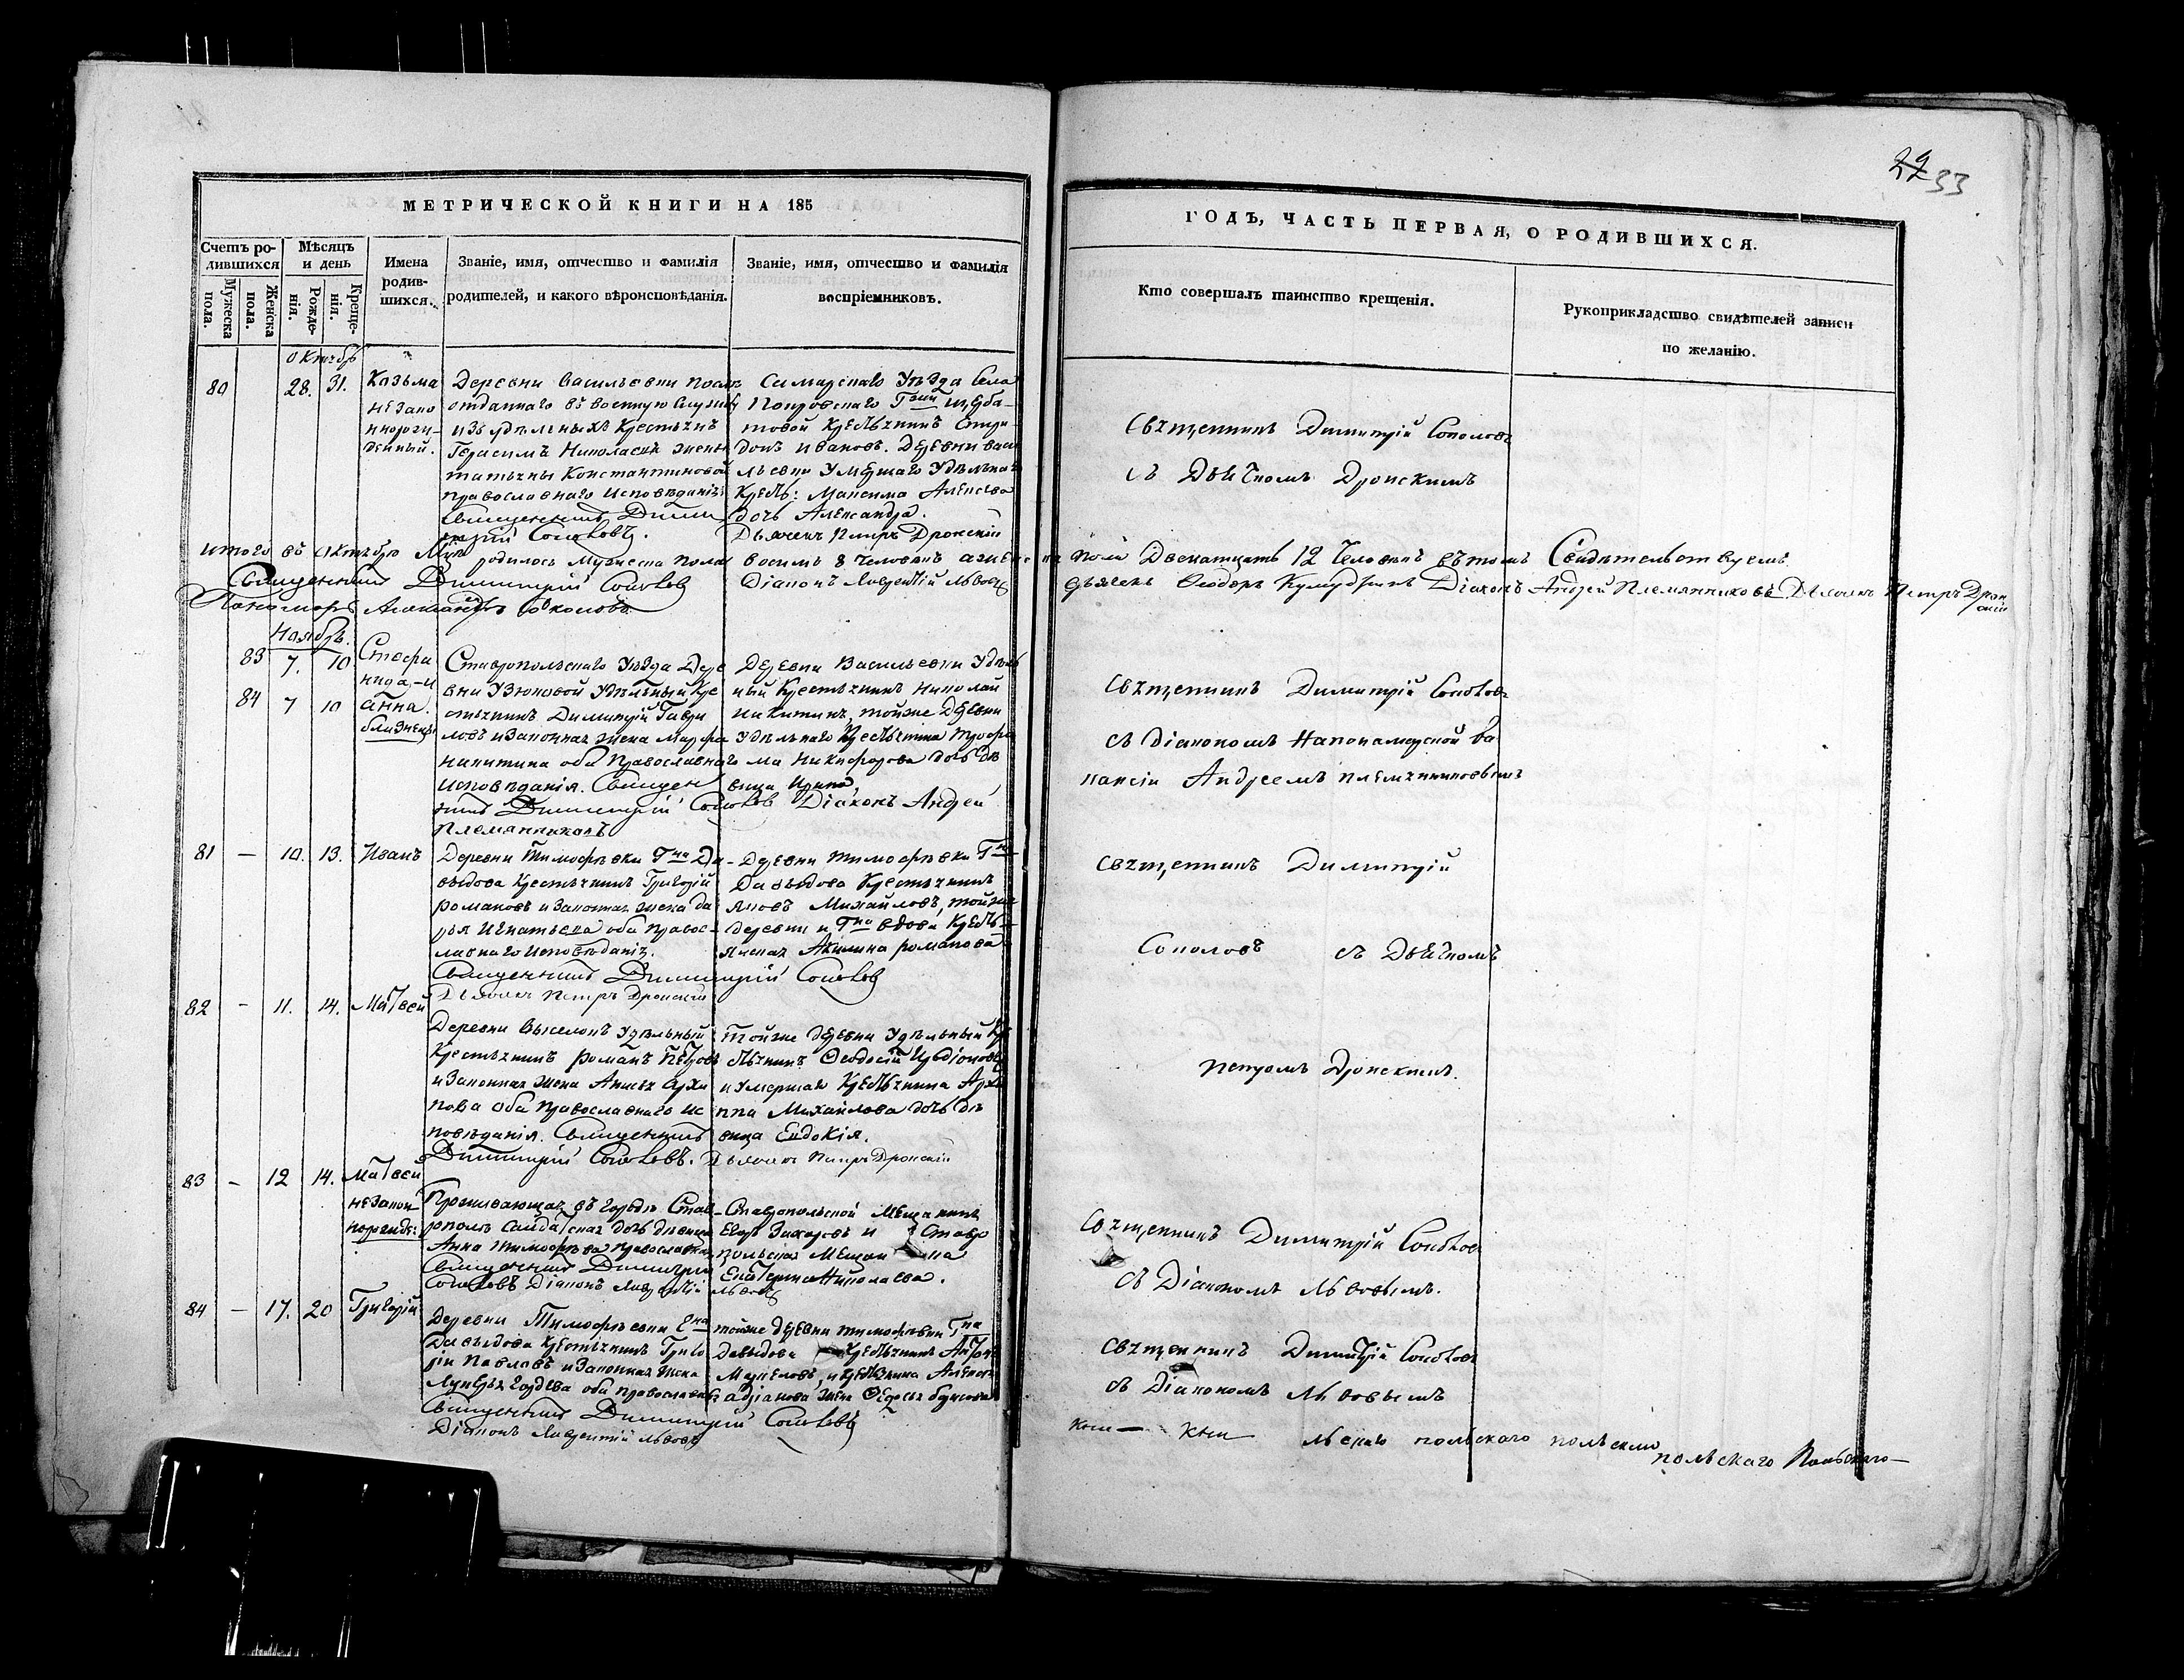 22 33
МЕТРИЧЕСКОЙ КНИГИ НА 185
ГОДЪ, ЧАСТЬ ПЕРВАЯ, О РОДИВШИХСЯ.
Счетъ ро-
дившихся
Мужеска
пола.
Женска
пола.
Мѣсяцъ
и день
Рожде-
нія.
Креще-
нія.
Имена
родив-
шихся.
Званіе, имя, отчество и фамилія
родителей, и какого вѣроисповѣданія.
Званіе, имя, отчество и фамилія
воспріемниковъ.
Кто совершалъ таинство крещенія.
Рукоприкладство свидѣтелей записи
по желанію.
Октябрь
80 28. 31.
Козьма
незако
ннорож-
денный.
Деревни Васильевки послѣ
отданнаго въ военную службу
изъ удѣльныхъ крестьянъ
Герасимъ Николаевъ жены
татьяны Константиновой
православнаго исповѣданія
Священникъ Дими
трій Соколовъ.
Самарскаго уѣзда села
Покровскаго Г-жи Щерба-
товой крестьянинъ Спири-
донъ Ивановъ. Деревни Васи
льевки умершаго удѣльна
крестъ: Максима Алексѣева
дочь Александра.
Дьячекъ Петръ Дронскій
Священникъ Димитрій Соколовъ
съ Дьячкомъ Дронскимъ
Итого въ Октябрѣ родилось мужеска пола восемь 8 человѣкъ а женска пола Двенатцать 12 Человѣкъ въ томъ Свидѣтельствуемъ.
Священникъ Димитрій Соколовъ Діаконъ Лаврентій Львовъ дьячекъ Ѳеодоръ Діаконъ Андрей Племянниковъ Дьячекъ Петръ Дрон
скій
Пономарь Александръ Соколовъ.
Ноябрь.
83 7. 10
84 7 10
Стефа
нида, -и
Анна.
близнецы
Ставропольскаго уѣзда Дере
вни Узюковой удѣльный кре
стьянинъ Димитрій Гаври
ловъ и законная жена Марфа
Никитина оба православнаго
исповѣданія. Священ
никъ Димитрій Соколовъ Діаконъ Андрей
Племянниковъ
Деревни Васильевки удѣль
ный крестьянинъ Николай
Никитинъ, тойже деревни
удѣльнаго крестьянина Трофи
ма Никифорова дочь дѣ
вица Ирина,
Священникъ Димитрій Соколовъ
съ діакономъ на пономарской ва
кансіи Андреемъ Племянниковымъ
81 — 10. 13. Иванъ
Деревни Тимофѣевки Г-на Да-
выдова крестьянинъ Григорій
романовъ и законная жена да
рья Игнатьева оба правос-
лавнаго исповѣданія.
Священникъ Димитрій Соколовъ
Дьячекъ Петръ Дронскій
Деревни тимофѣевки Г-на
Давыдова крестьянинъ
Яковъ Михайловъ, тойже
деревни и Г-на вдова кресть-
янская Акилина романова
Священникъ Димитрій
Соколовъ съ Дьячкомъ
Петромъ Дронскимъ.
82 - 11. 14. Матвей
Деревни Выселокъ удѣльный
крестьянинъ романъ Петровъ
и законная жена Анисья Архи
пова оба православнаго ис
повѣданія. Священникъ
Димитрій Соколовъ. Дьячекъ Петръ Дронскій
Тойже деревни удѣльный кре
стьянинъ Ѳеодосій
и умершаго крестьянина Архи
ппа Михайлова дочь дѣ
вица Евдокія.
83 - 12 14. Матвей
незакон
норожде:
Проживающая въ городѣ Став-
рополѣ салдатская дочь дѣвица
Анна Тимофѣева православная
Священникъ Димитрій
Соколовъ Діаконъ Лаврентій Львовъ
Ставропольской мещанинъ
Егоръ Захаровъ и Ставро
польская мещанка
Екатерина Николаева.
Священникъ Димитрій Соколовъ
съ Діакономъ Львовымъ.
84 — 17. 20 Григорій
Деревни Тимофѣевки Г-на
Давыдова крестьянинъ Григо
рій Павловъ и законная жена
Лукерья оба православна
Священникъ Димитрій Соколовъ
Діаконъ Лаврентій Львовъ
тойже деревни тимофѣевки Г-на
Давыдова крестьянинъ Антонъ
и крестьянина Алексѣя
жена Ѳедосья
Священникъ Димитрій Соколовъ
съ Діакономъ Львовымъ
льскаго польскаго польскаго
польскаго Польскаго—